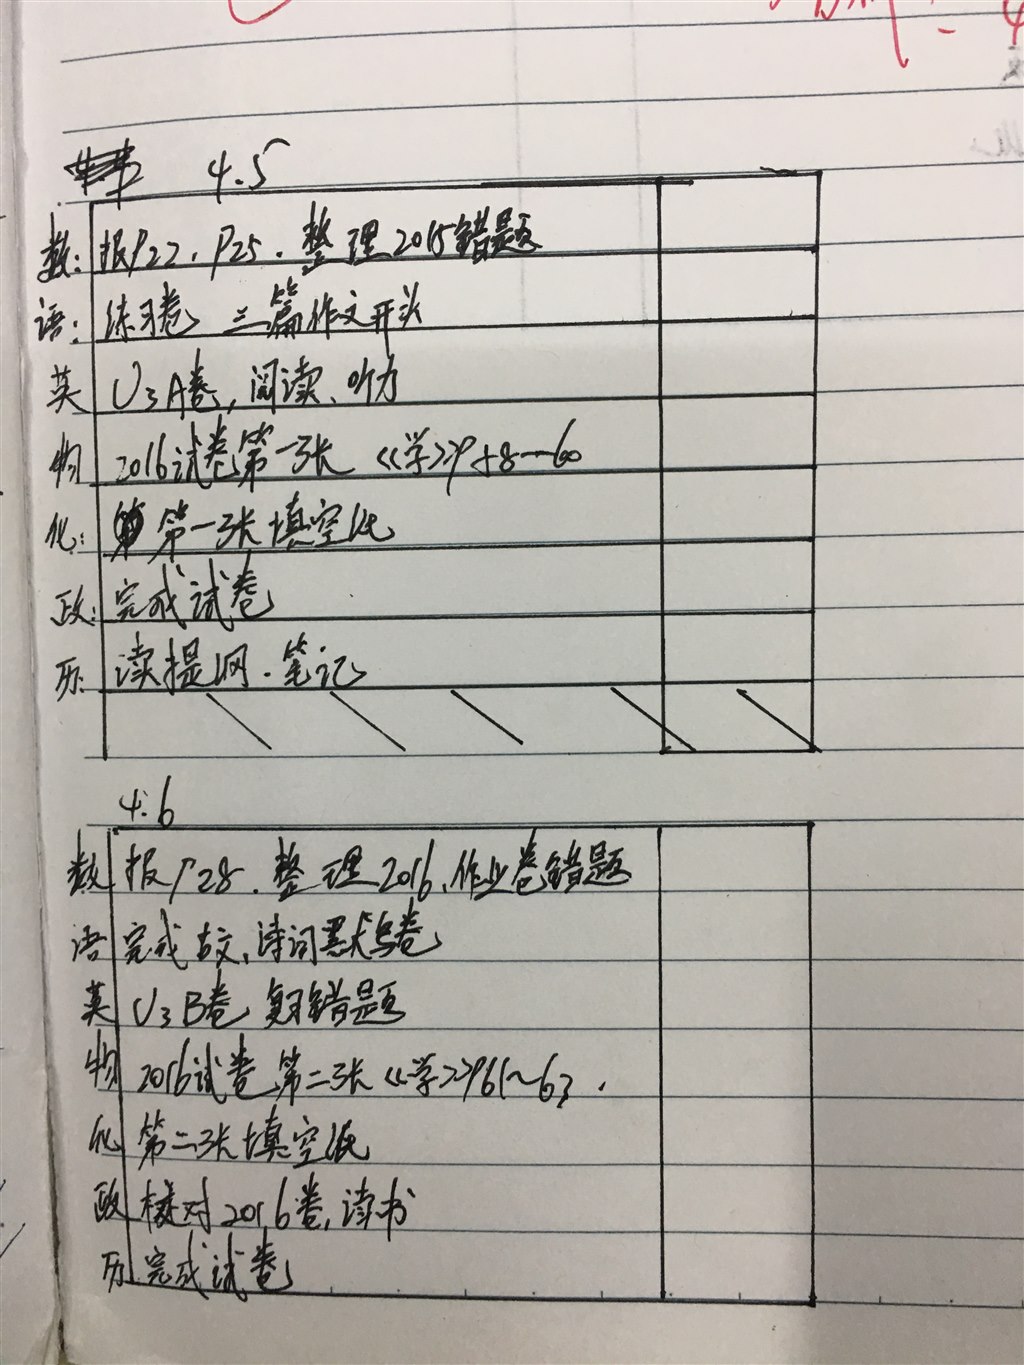 4.5
数: 报P22, P25. 整理2015错题
语: 练习卷 三篇作文开头
英 U3A卷, 阅读、听力
物 2016试卷第一张 《学》P58—60
化: 第一张填空纸
政: 完成试卷
历: 读提纲. 笔记
4.6
数 报P28. 整理2016、作业卷错题
语 完成古文、诗词默写卷
英 U3B卷 复习错题
物 2016试卷第二张《学》P61~63.
化 第二张填空纸
政 校对2016卷, 读书
历 完成试卷